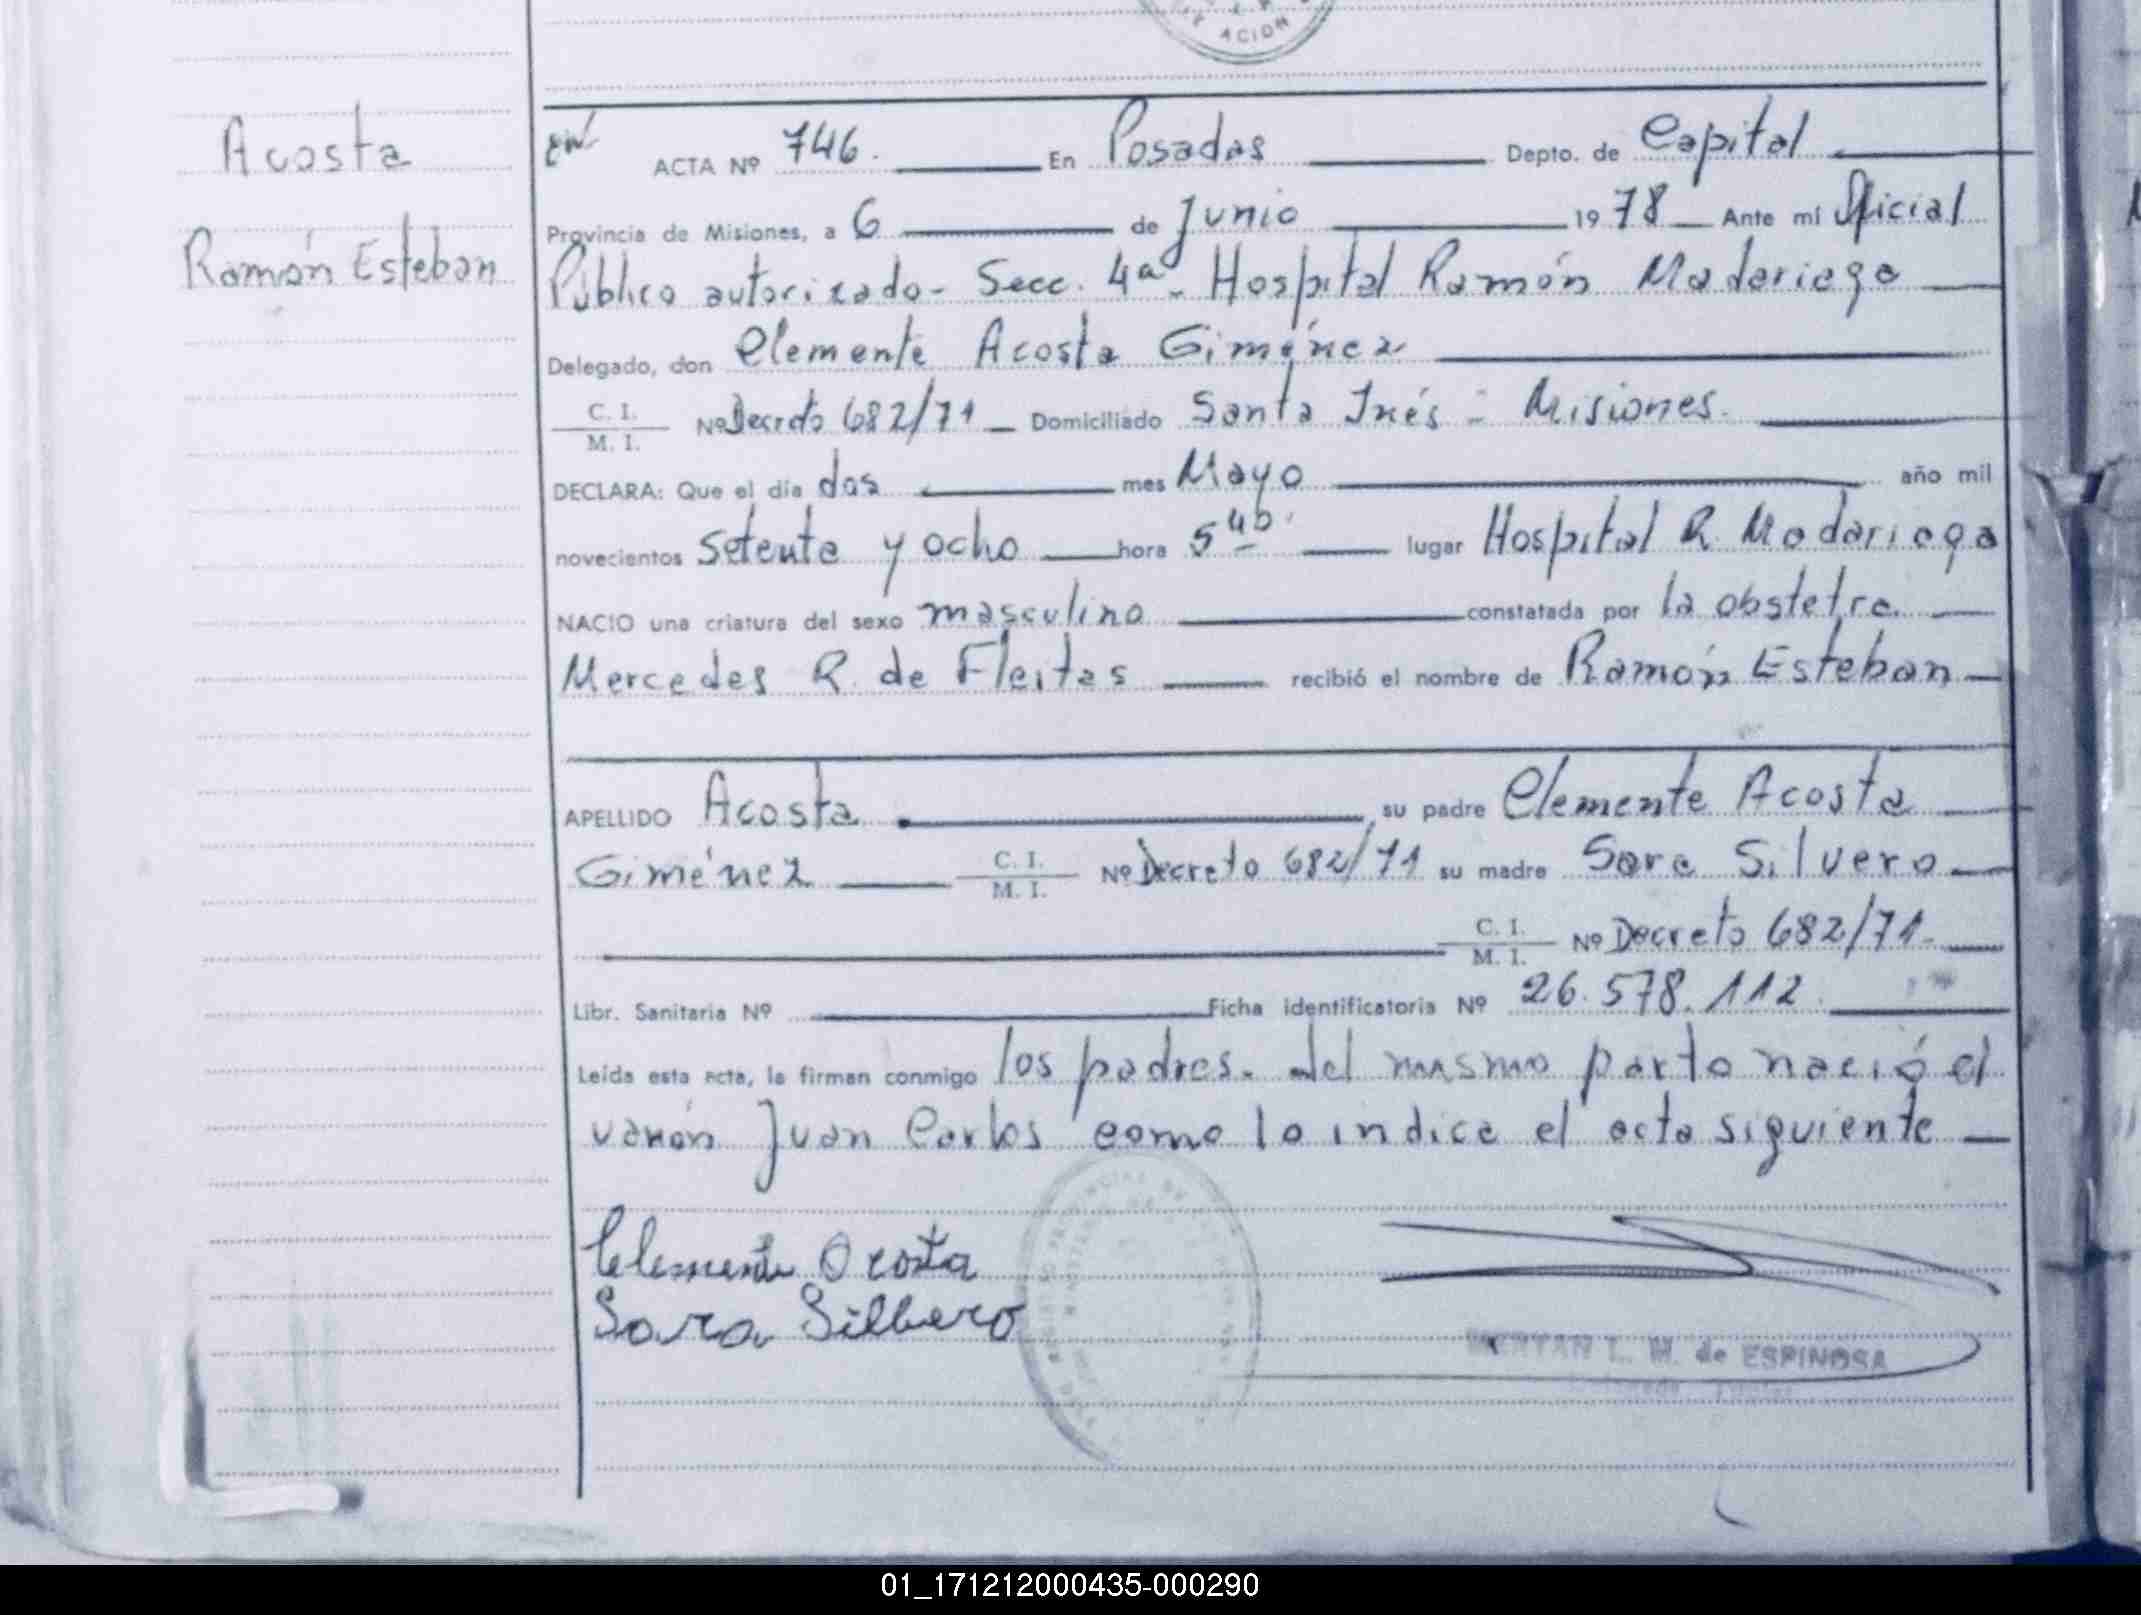 ACION
Acosta
Ramón Esteban
ACTA Nº 746. En Posadas Depto. de Capital
Provincia de Misiones, a 6 de Junio 1978 Ante mí Oficial
Público autorizado- Secc. 4ª- Hospital Ramón Madariaga
Delegado, don Clemente Acosta Giménez
C. I.
M. I. Nº Decreto 682/71 Domiciliado Santa Inés - Misiones.
DECLARA: Que el día dos mes Mayo año mil
novecientos setenta y ocho hora 5 lugar Hospital R Madariaga
NACIO una criatura del sexo masculino constatada por la obstetra
Mercedes R. de Fleitas recibió el nombre de Ramón Esteban
APELLIDO Acosta su padre Clemente Acosta
Giménez C. I.
M. I. Nº Decreto 682/71 su madre Sara Silvero
C. I.
M. I. Nº Decreto 682/71.
Libr. Sanitaria Nº Ficha identificatoria Nº 26.578.112
Leída esta acta, la firman conmigo los padres. del mismo parto nació el
varón Juan Carlos como lo indica el acta siguiente
Clemente Acosta
Sara Silbero
L. M. de ESPINOSA
01_171212000435-000290